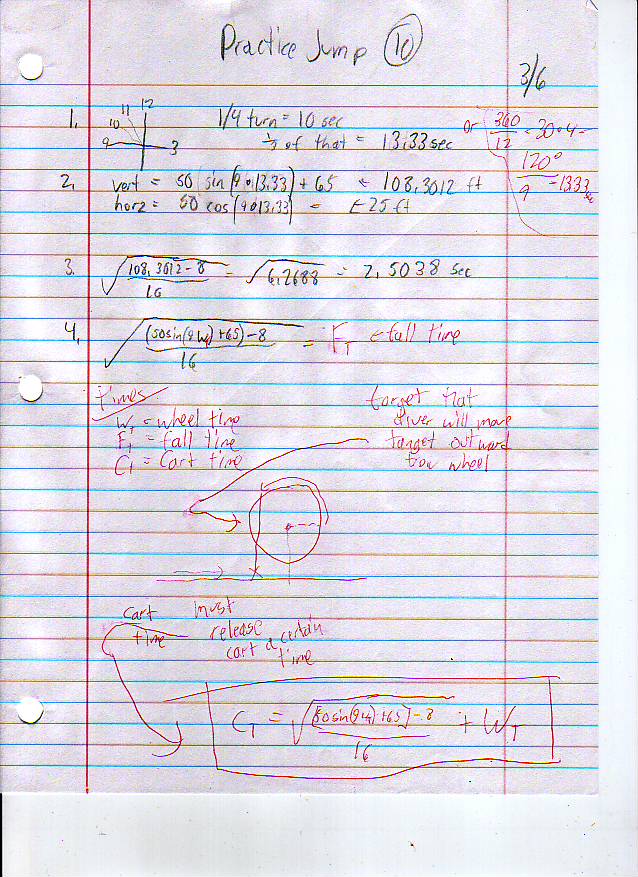 Practice Jump 10
3/6
1. 9 10 11 12 3
1/4 turn = 10 sec
1/3 of that = 13.33 sec
or 360/12 = 30 · 4 =
120°/9 = 13.33 sec
2. vert = 50 sin(9·13.33) + 65 = 108.3012 ft
horz = 50 cos(9·13.33) = -25 ft
3. √((108.3012 - 8)/16) = √6.2688 = 2.5038 sec
4. √(((50sin(9W_T) + 65) - 8)/16) = F_T ← fall time
times:
W_T = wheel time
F_T = fall time
C_T = Cart time
forget that
diver will move
target outward
from wheel
Cart
time
must
release
cart @ certain
time
C_T = √(([50sin(9W_T) + 65] - 8)/16) + W_T